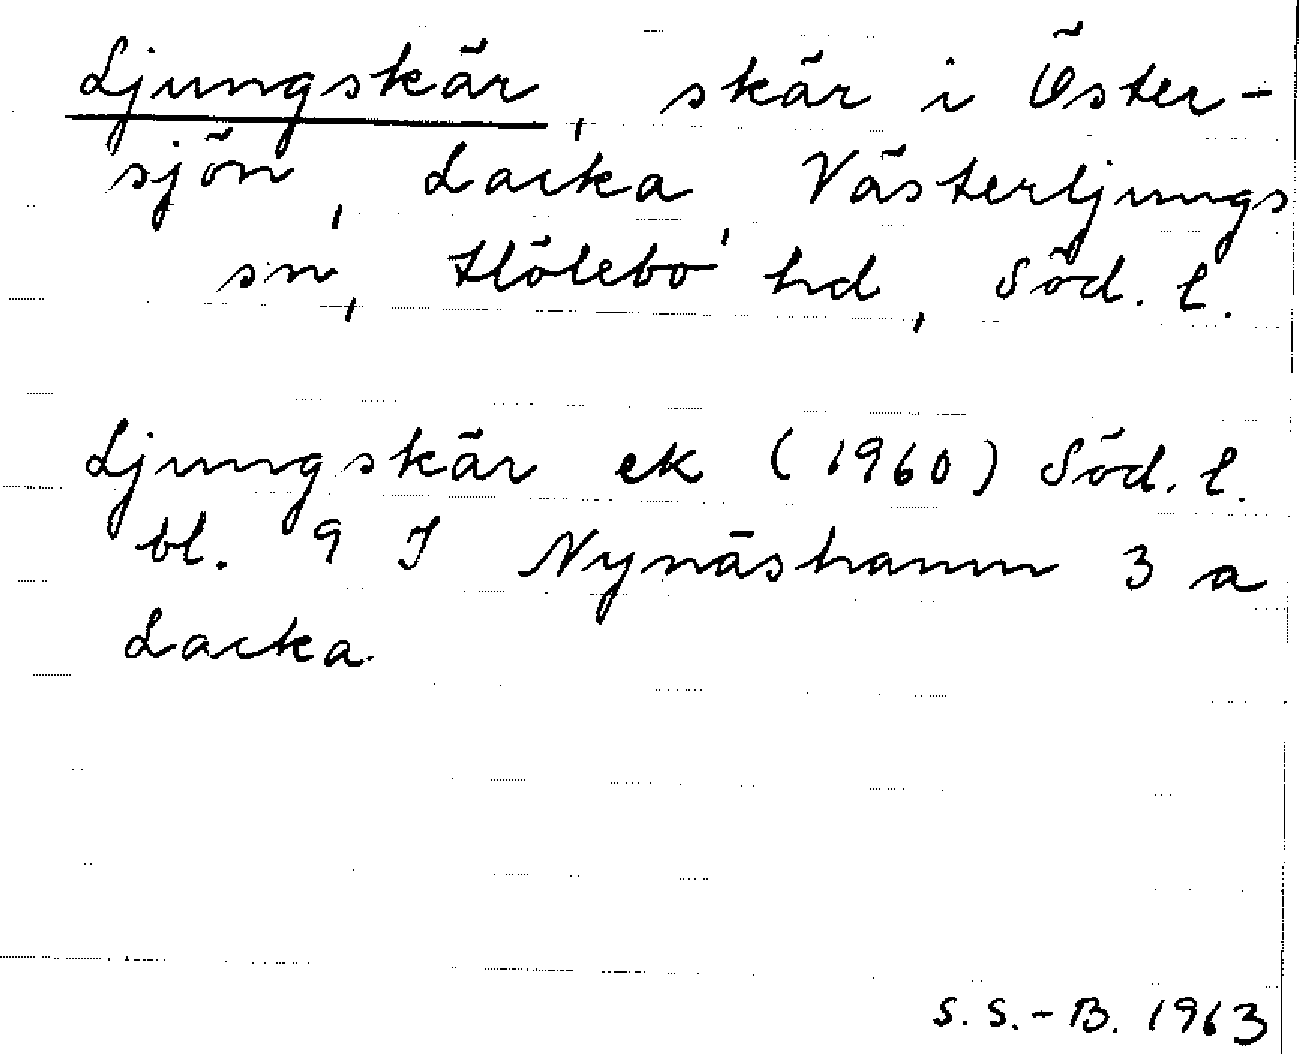 Ljungskär, skär i Öster-
sjön, Lacka, Västerljungs
sn, Hölebo hd, Söd. l.
Ljungskär ek (1960) Söd. l.
bl. 9 I Nynäshamn 3 a
Lacka.
S. S.-B. 1963